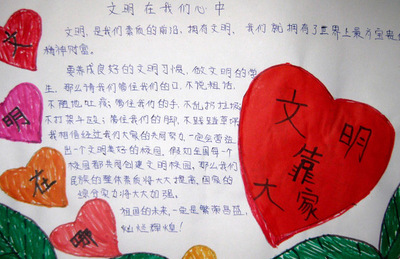 文明在我们心中
文明,是我们素质的前沿,拥有文明,我们就拥有了世界上最为宝贵的
精神财富。
要养成良好的文明习惯,做文明的学
生,那么请我们管住我们的口,不说粗话,
不随地吐痰;管住我们的手,不乱扔垃圾,
不打架斗殴;管住我们的脚,不践踏草坪
我相信经过我们大家的共同努力,一定会营造
出一个文明美好的校园,假如全国每一个
校园都共同创建文明校园,那么我们
民族的整体素质将大大提高,国家的
综合实力将大大加强。
祖国的未来,一定是繁荣昌盛,
灿烂辉煌!
文
明
在
哪
文明
靠
大家